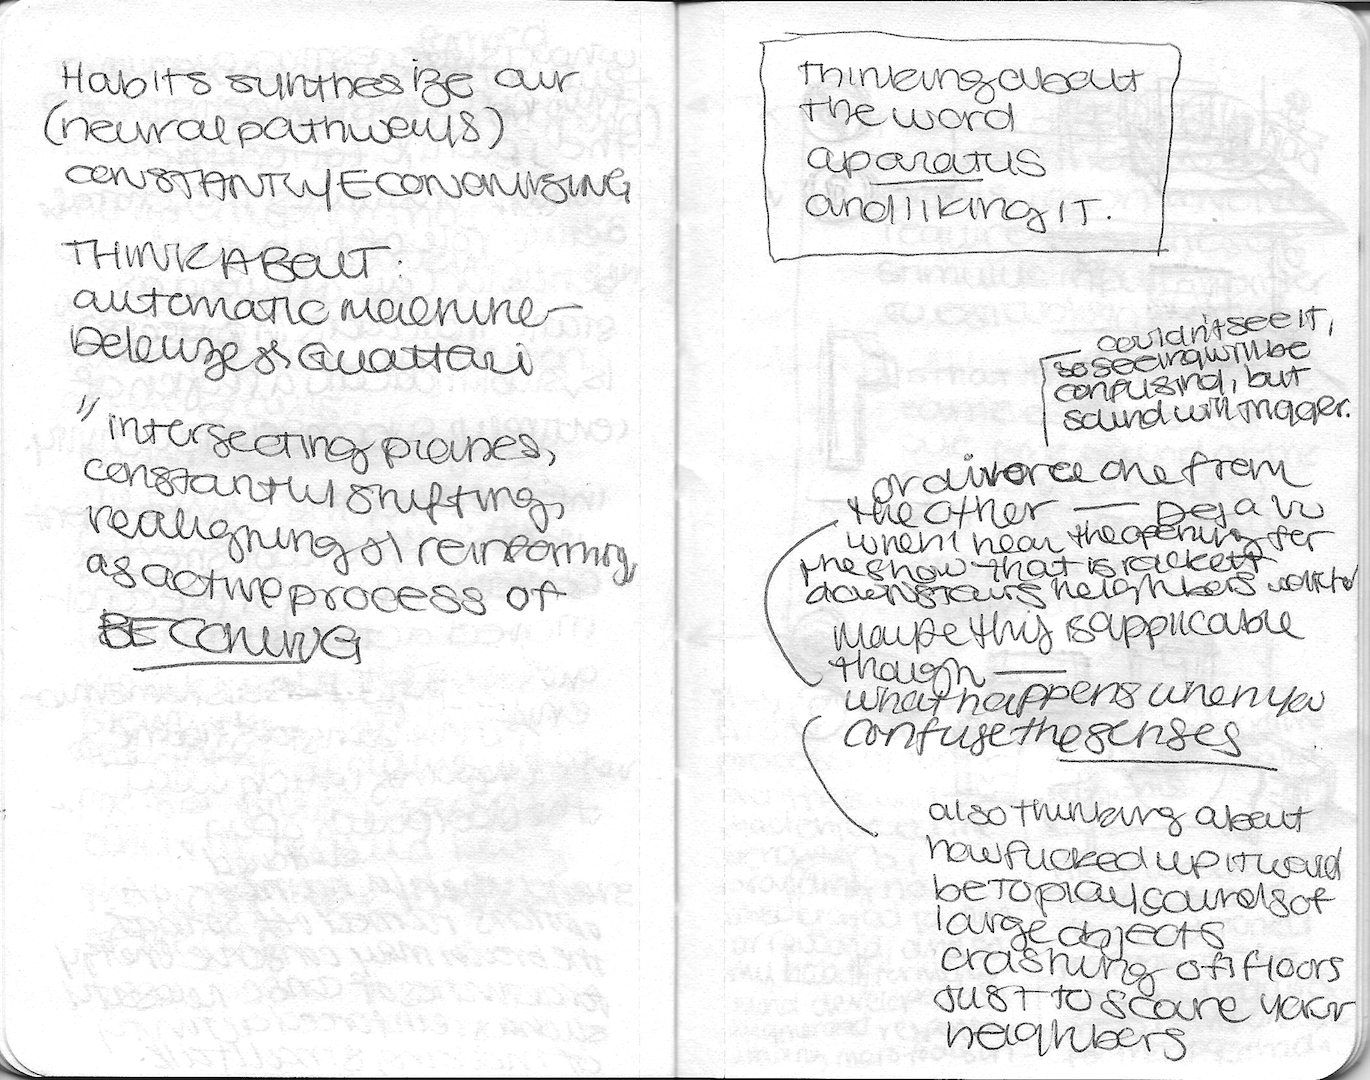 Habits sunthesize our
(neural pathways)
CONSTANTLY ECONOMIZING
THINK ABOUT:
automatic machine—
Deleuze & Guattari
"intersecting planes,
constantly shifting,
realigning & reinforming,
as active process of
BECOMING
thinking about
the word
aparatus
and liking IT.
couldn't see IT,
so seeing will be
confusing, but
sound will trigger.
or divorce one from
the other — Deja Vu
when I hear the opening for
the show that is
downstairs neighbers watch
maybe this is applicable
though —
what happens when you
confuse the senses
also thinking about
how fucked up it would
be to play sounds of
large objects
crashing off floors
JUST to scare your
neighbers